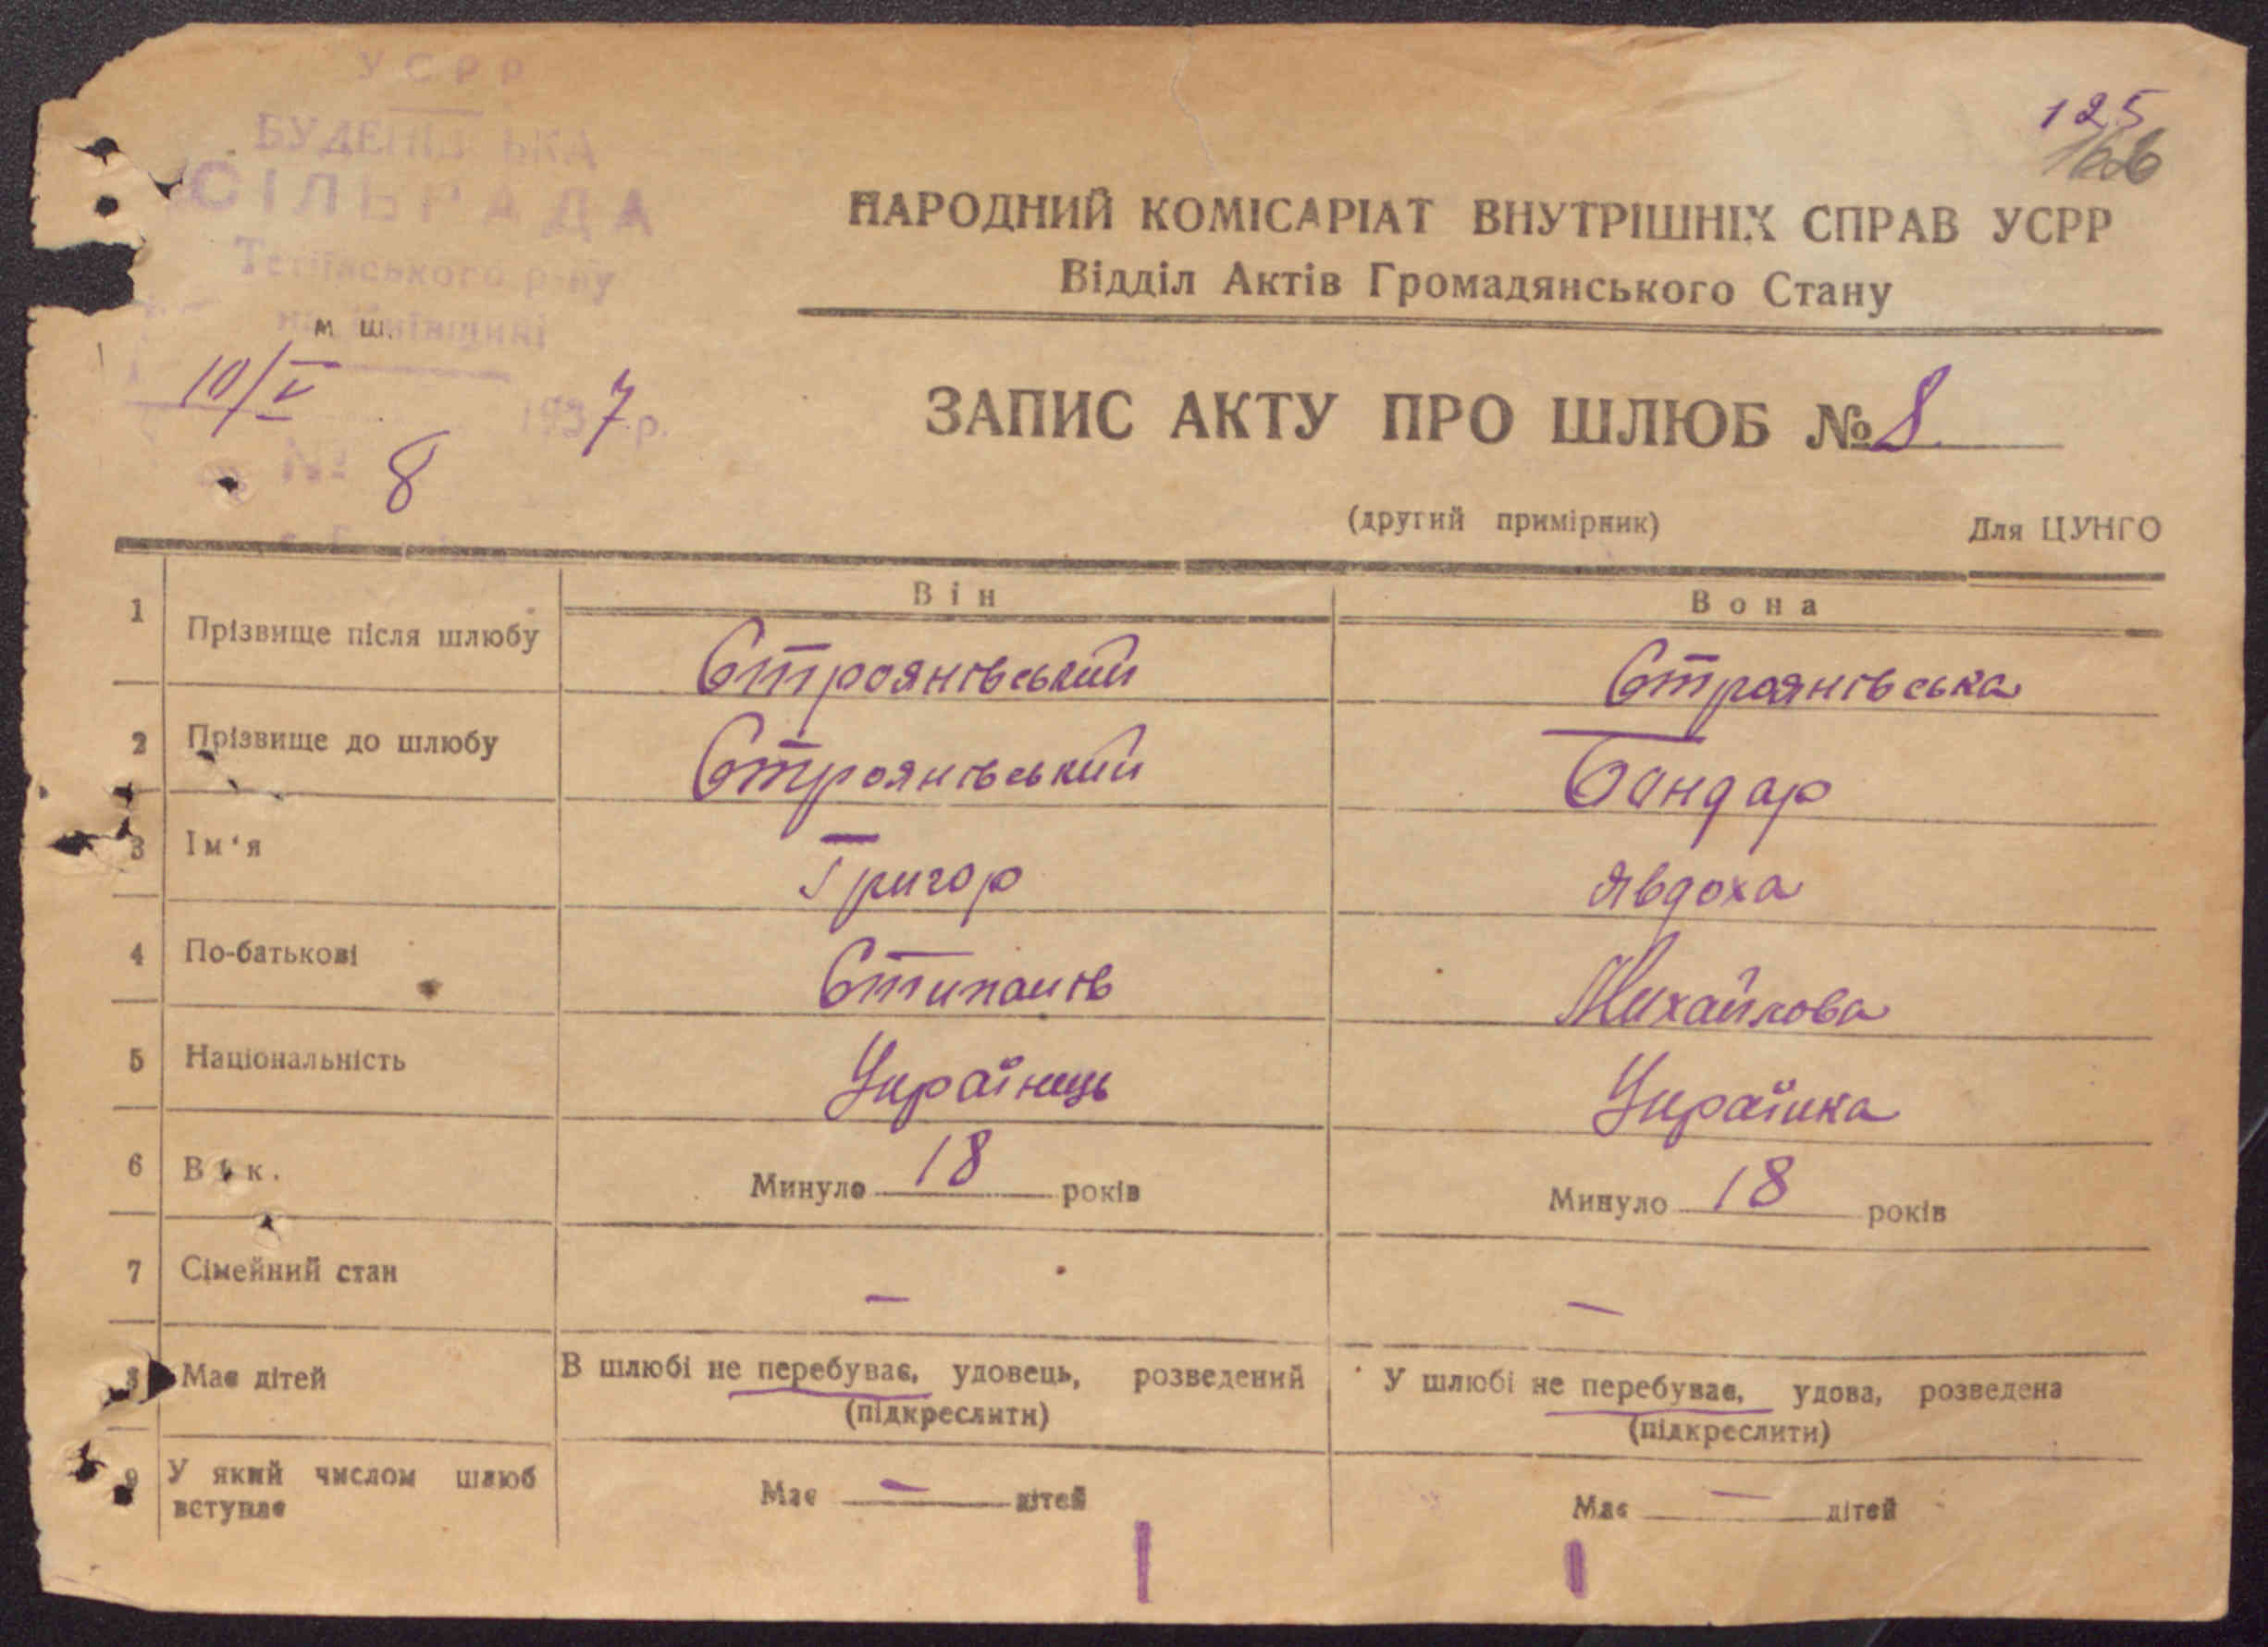 УСРР
СІЛЬРАДА
Тетіївського р-ну
на Київщині
м ш.
10/V 1937 р.
№ 8
125
166
НАРОДНИЙ КОМІСАРІАТ ВНУТРІШНІХ СПРАВ УСРР
Відділ Актів Громадянського Стану
ЗАПИС АКТУ ПРО ШЛЮБ № 8
(другий примірник) Для ЦУНГО
Він Вона
1 Прізвище після шлюбу Строянівський Строянівська
2 Прізвище до шлюбу Строянівський Бандар
3 Ім'я Григор Явдоха
4 По-батькові Стипанів Михайлова
5 Національність Українець Українка
6 Вік. Минуло 18 років Минуло 18 років
7 Сімейний стан — —
8 Має дітей В шлюбі не перебуває, удовець, розведений У шлюбі не перебуває, удова, розведена
(підкреслити) (підкреслити)
9 У який числом шлюб Має — дітей Має — дітей
вступає